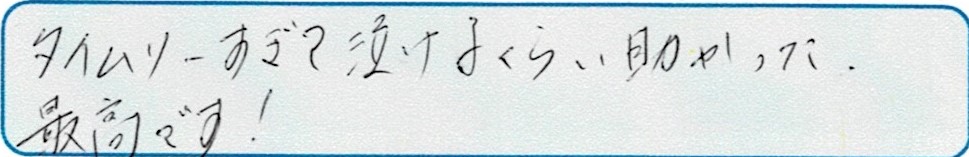 タイムリーすぎて泣けるくらい助かった.
最高です!